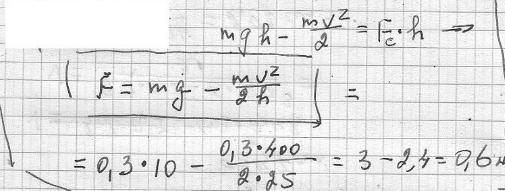 mgh - mv²/2 = Fc·h →
F = mg - mv²/2h =
= 0,3·10 - 0,3·400/2·25 = 3 - 2,4 = 0,6 н